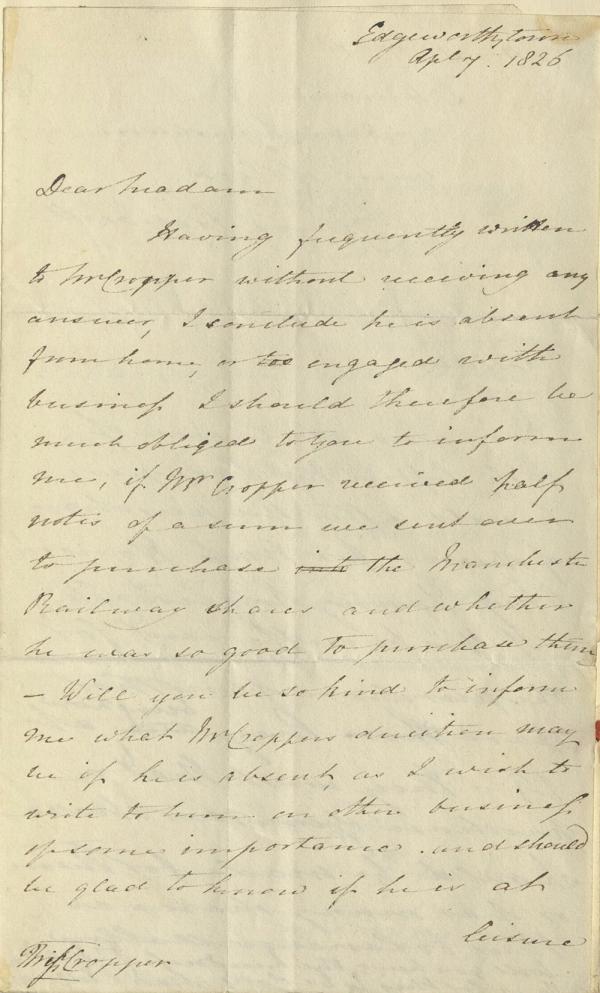 Edgeworthstown
Apl 7. 1826
Dear Madam
Having frequently written
to Mr Cropper without receiving any
answer, I conclude he is absent
from home, or too engaged with
business I should therefore be
much obliged to you to inform
me, if Mr Cropper received half
notes of a sum we sent over
to purchase into the Manchester
Railway shares and whether
he was so good to purchase them
– Will you be so kind to inform
me what Mr Croppers direction may
be if he is absent, as I wish to
write to him on other business
of some importance. and should
be glad to know if he is at
leisure
Miss Cropper